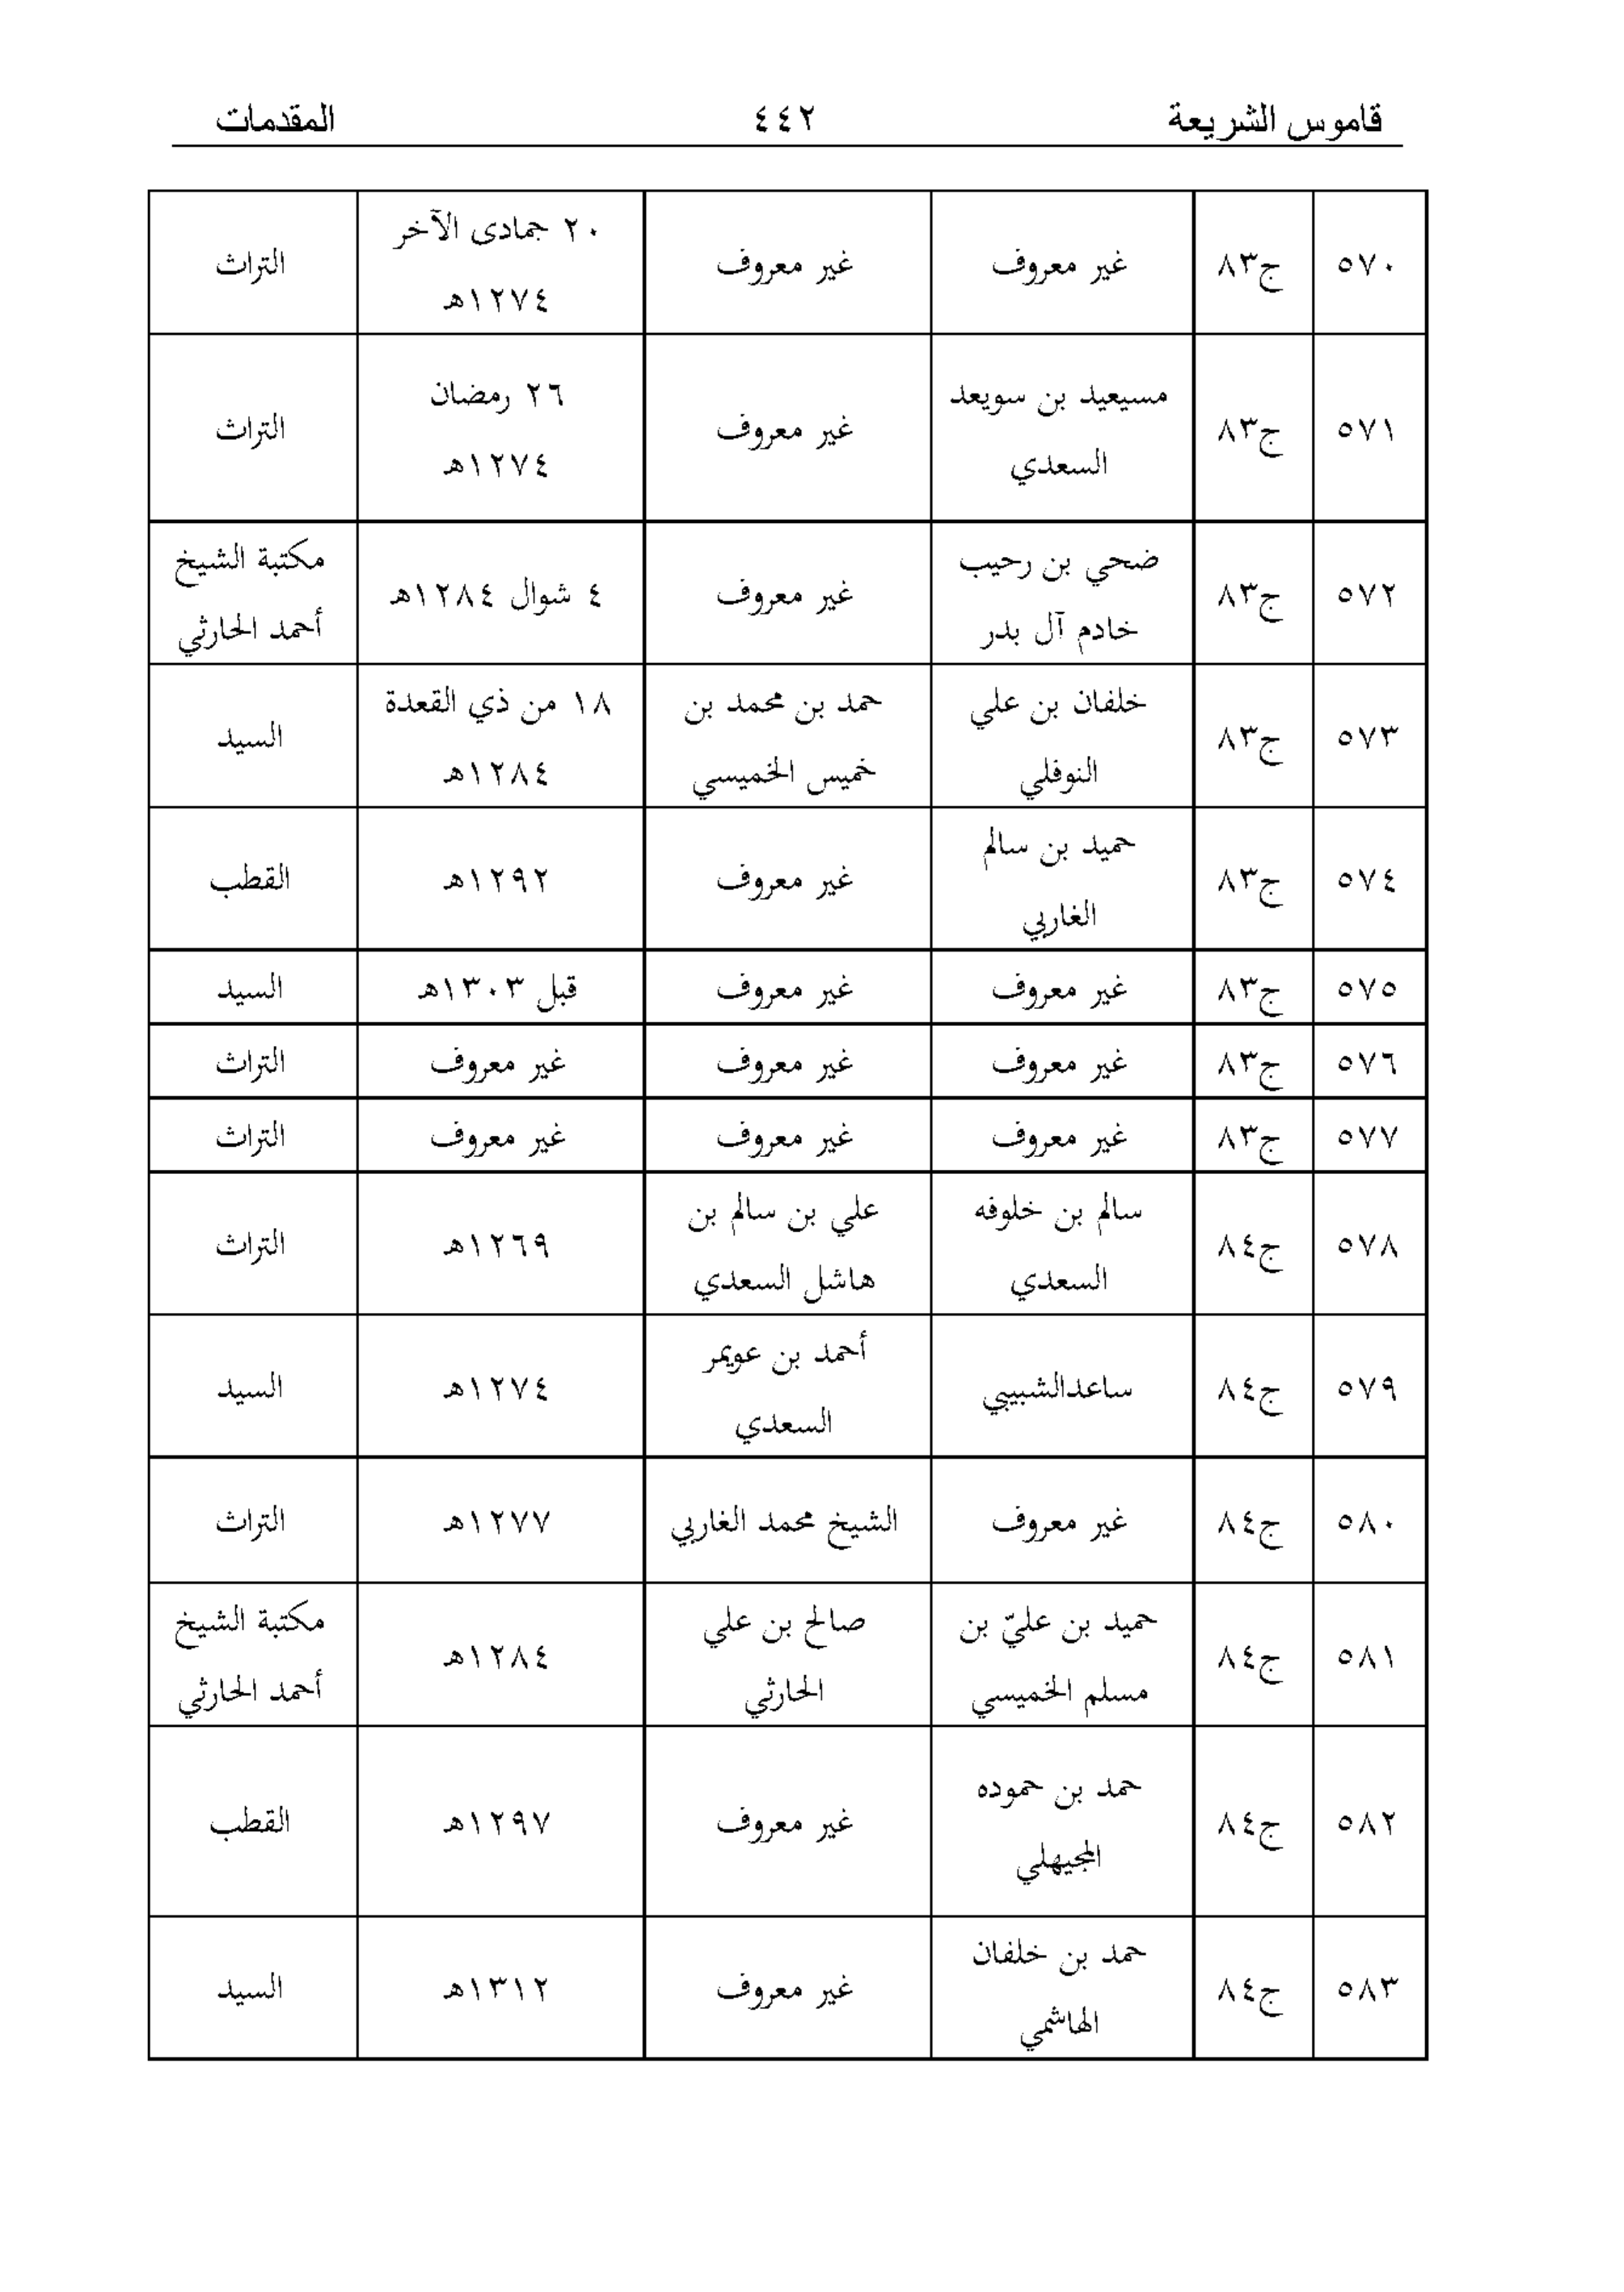 قاموس الشريعة ٤٤٢ المقدمات
٥٧٠ ج٨٣ غير معروف غير معروف ٢٠ جمادى الآخر
١٢٧٤هـ التراث
٥٧١ ج٨٣ مسيعيد بن سويعد
السعدي غير معروف ٢٦ رمضان
١٢٧٤هـ التراث
٥٧٢ ج٨٣ ضحي بن رحيب
خادم آل بدر غير معروف ٤ شوال ١٢٨٤هـ مكتبة الشيخ
أحمد الحارثي
٥٧٣ ج٨٣ خلفان بن علي
النوفلي حمد بن محمد بن
خميس الخميسي ١٨ من ذي القعدة
١٢٨٤هـ السيد
٥٧٤ ج٨٣ حميد بن سالم
الغاربي غير معروف ١٢٩٢هـ القطب
٥٧٥ ج٨٣ غير معروف غير معروف قبل ١٣٠٣هـ السيد
٥٧٦ ج٨٣ غير معروف غير معروف غير معروف التراث
٥٧٧ ج٨٣ غير معروف غير معروف غير معروف التراث
٥٧٨ ج٨٤ سالم بن خلوفه
السعدي علي بن سالم بن
هاشل السعدي ١٢٦٩هـ التراث
٥٧٩ ج٨٤ ساعدالشبيبي أحمد بن عويمر
السعدي ١٢٧٤هـ السيد
٥٨٠ ج٨٤ غير معروف الشيخ محمد الغاربي ١٢٧٧هـ التراث
٥٨١ ج٨٤ حميد بن عليّ بن
مسلم الخميسي صالح بن علي
الحارثي ١٢٨٤هـ مكتبة الشيخ
أحمد الحارثي
٥٨٢ ج٨٤ حمد بن حموده
المجيهلي غير معروف ١٢٩٧هـ القطب
٥٨٣ ج٨٤ حمد بن خلفان
الهاشمي غير معروف ١٣١٢هـ السيد